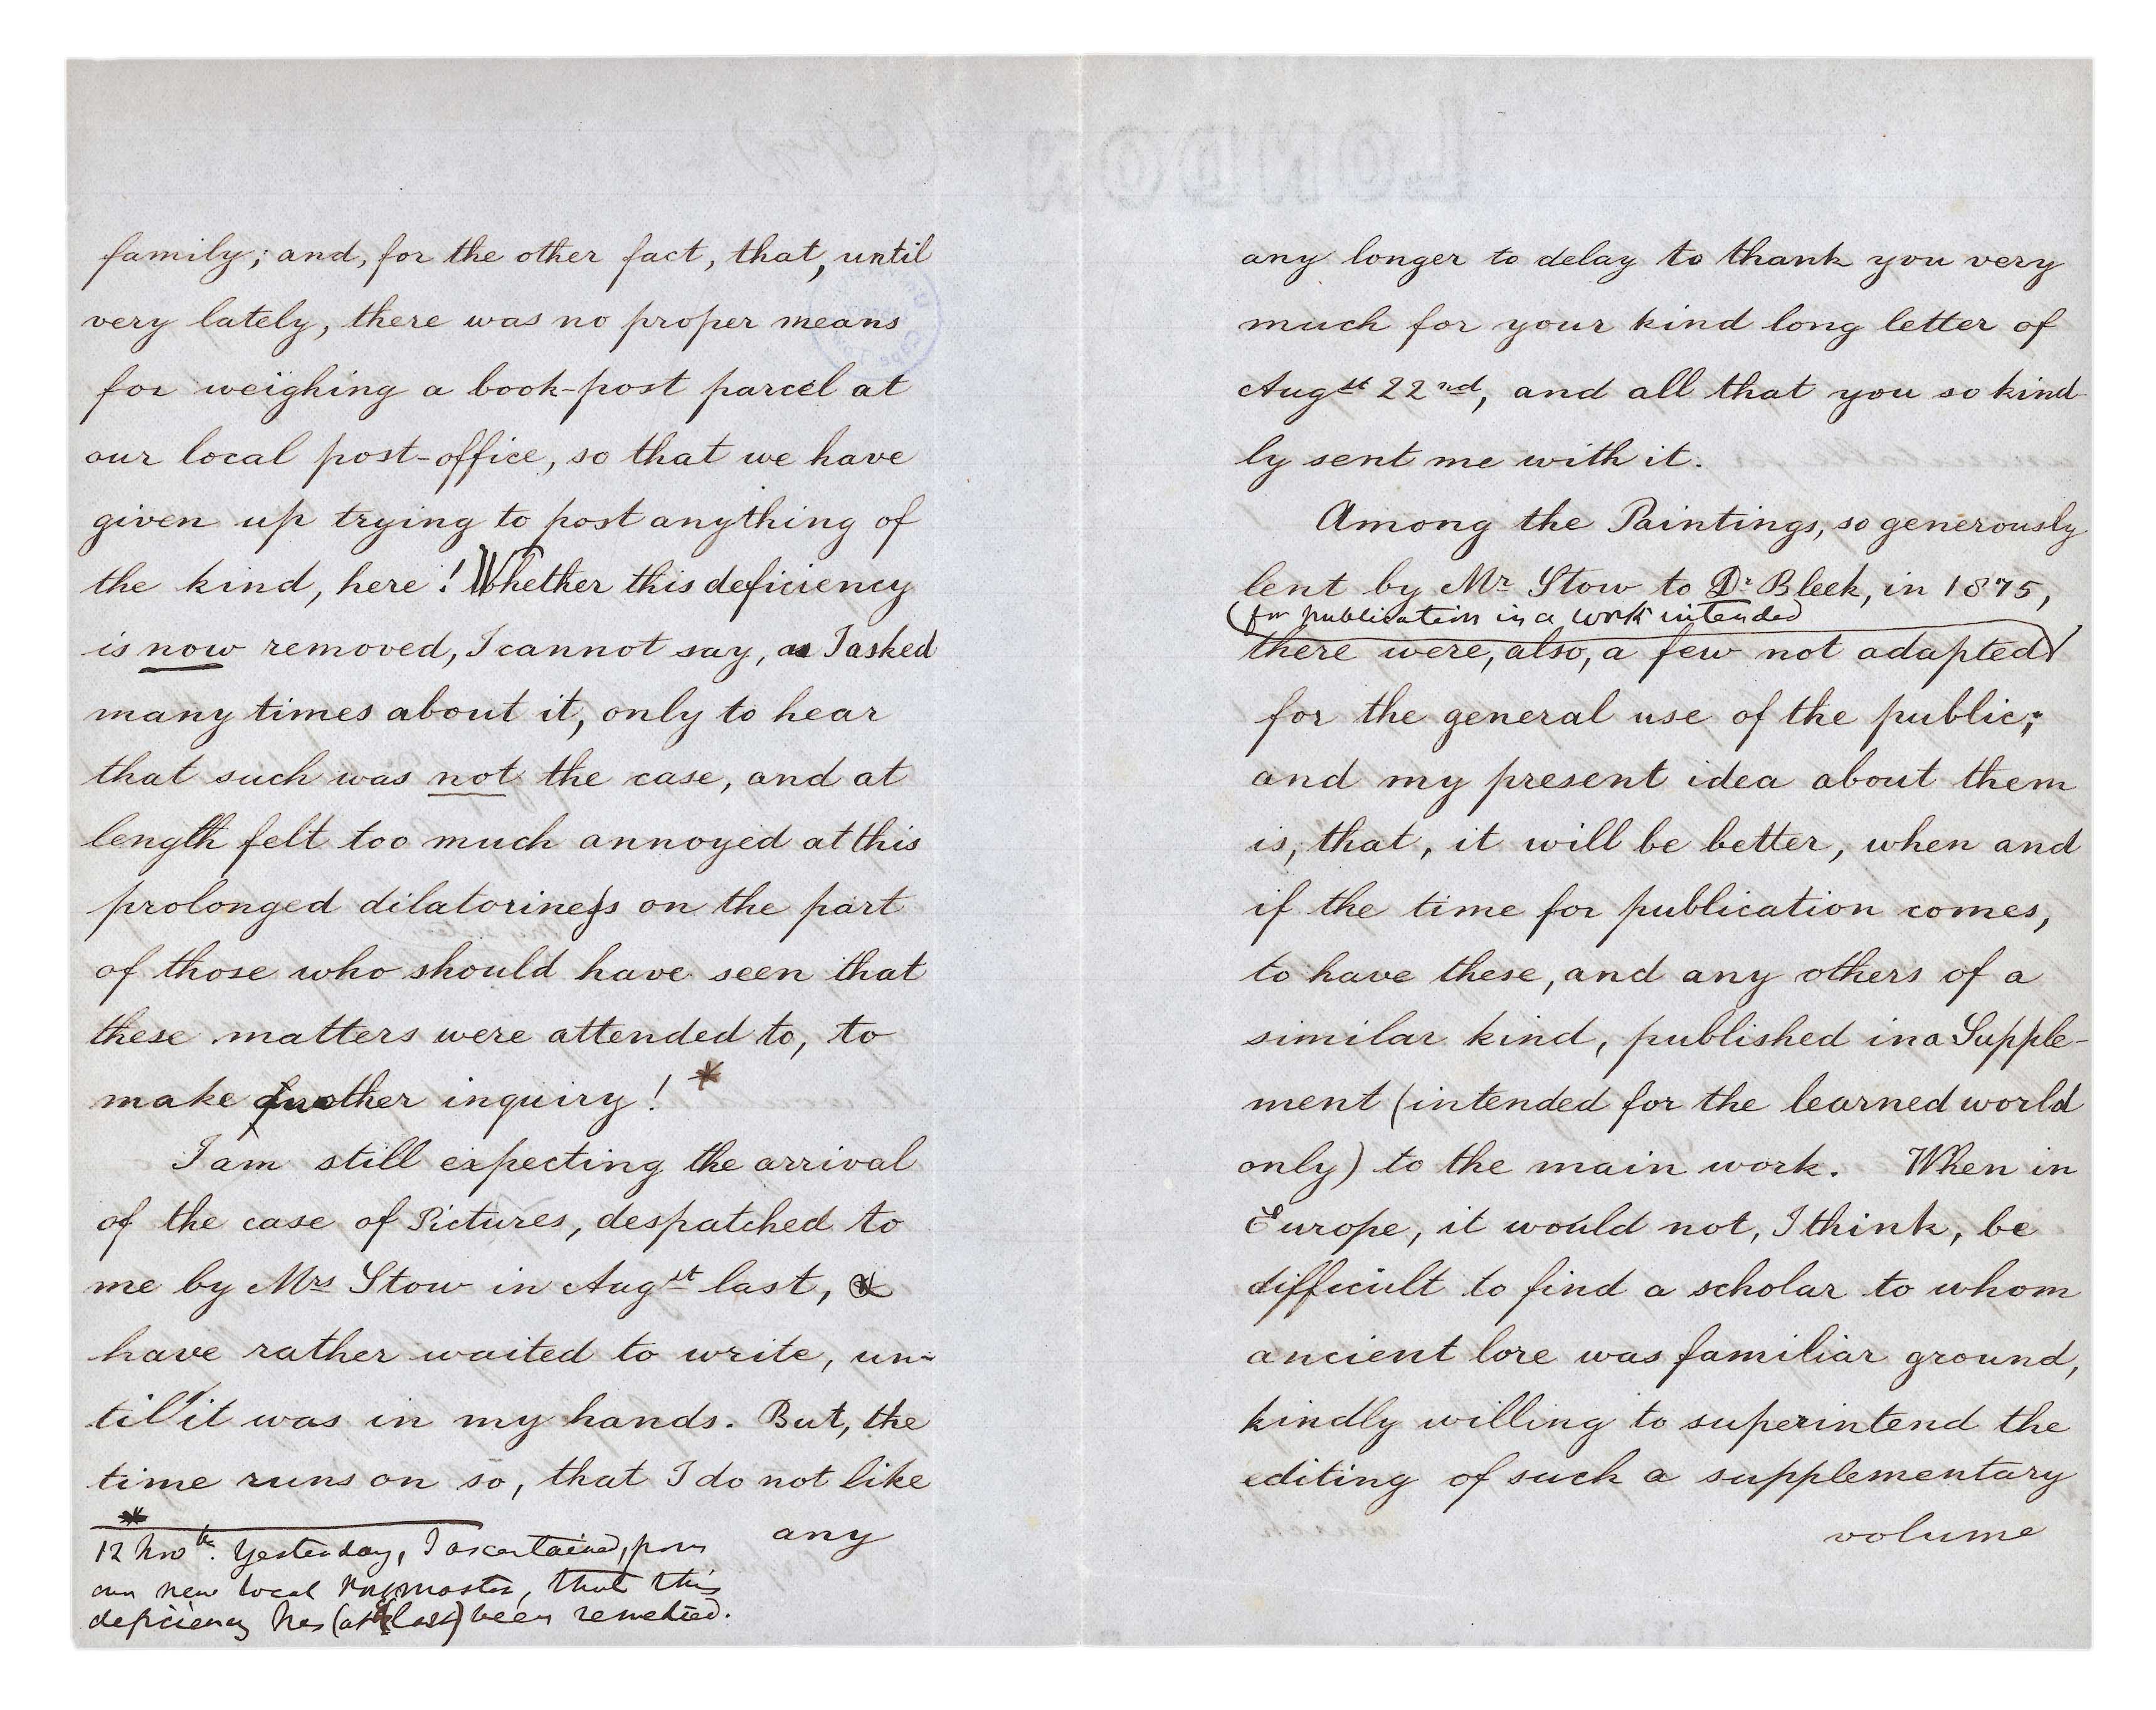 family; and, for the other fact, that, until
very lately, there was no proper means
for weighing a book-post parcel at
our local post-office, so that we have
given up trying to post anything of
the kind, here! Whether this deficiency
is now removed, I cannot say, as I asked
many times about it, only to hear
that such was not the case, and at
length felt too much annoyed at this
prolonged dilatoriness on the part
of those who should have seen that
these matters were attended to, to
make another inquiry! *
I am still expecting the arrival
of the case of Pictures, despatched to
me by Mrs Stow in Augst last, &
have rather waited to write, un-
til it was in my hands. But, the
time runs on so, that I do not like
any
*
12 Novbr. Yesterday, I ascertained, from
our new local Postmaster, that this
deficiency has (at last) been remedied.
LONDON
any longer to delay to thank you very
much for your kind long letter of
Augst 22nd, and all that you so kind-
ly sent me with it.
Among the Paintings, so generously
lent by Mr Stow to Dr Bleek, in 1875,
(for publication in a work intended
there were, also, a few not adapted
for the general use of the public;
and my present idea about them
is, that, it will be better, when and
if the time for publication comes,
to have these, and any others of a
similar kind, published in a Supple-
ment (intended for the learned world
only) to the main work. When in
Europe, it would not, I think, be
difficult to find a scholar to whom
ancient lore was familiar ground,
kindly willing to superintend the
editing of such a supplementary
volume